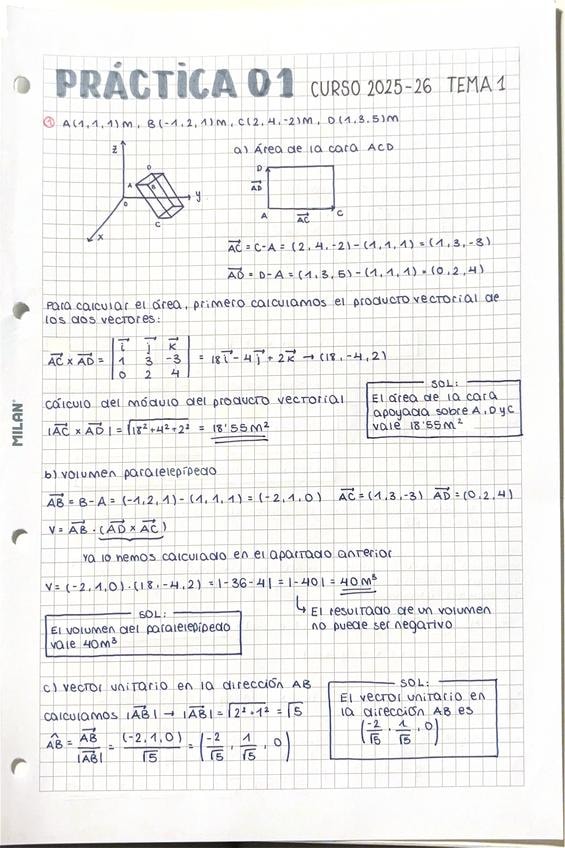 PRÁCTICA 01 CURSO 2025-26 TEMA 1
① A(1,1,1)m, B(-1,2,1)m, C(2,4,-2)m, D(1,3,5)m
a) Área de la cara ACD
z
D
A
B
O
y
C
x
D
AD→
A
AC→
C
AC→ = C-A = (2,4,-2)-(1,1,1) = (1,3,-3)
AD→ = D-A = (1,3,5)-(1,1,1) = (0,2,4)
Para calcular el área, primero calculamos el producto vectorial de
los dos vectores:
AC→ x AD→ = | i→ j→ k→ |
| 1 3 -3 | = 18i→ - 4j→ + 2k→ → (18,-4,2)
| 0 2 4 |
Cálculo del módulo del producto vectorial
|AC→ x AD→| = √18²+4²+2² = 18'55m²
SOL:
El área de la cara
apoyada sobre A,D y C
vale 18'55m²
MILAN
b) volumen paralelepípedo
AB→ = B-A = (-1,2,1)-(1,1,1) = (-2,1,0) AC→ = (1,3,-3) AD→ = (0,2,4)
V = AB→ · (AD→ x AC→)
Ya lo hemos calculado en el apartado anterior
V = (-2,1,0)·(18,-4,2) = |-36-4| = |-40| = 40m³
↳ El resultado de un volumen
no puede ser negativo
SOL:
El volumen del paralelepípedo
vale 40m³
c) vector unitario en la dirección AB
Calculamos |AB→| → |AB→| = √2²+1² = √5
ÂB = AB→/|AB→| = (-2,1,0)/√5 = (-2/√5, 1/√5, 0)
SOL:
El vector unitario en
la dirección AB es
(-2/√5, 1/√5, 0)